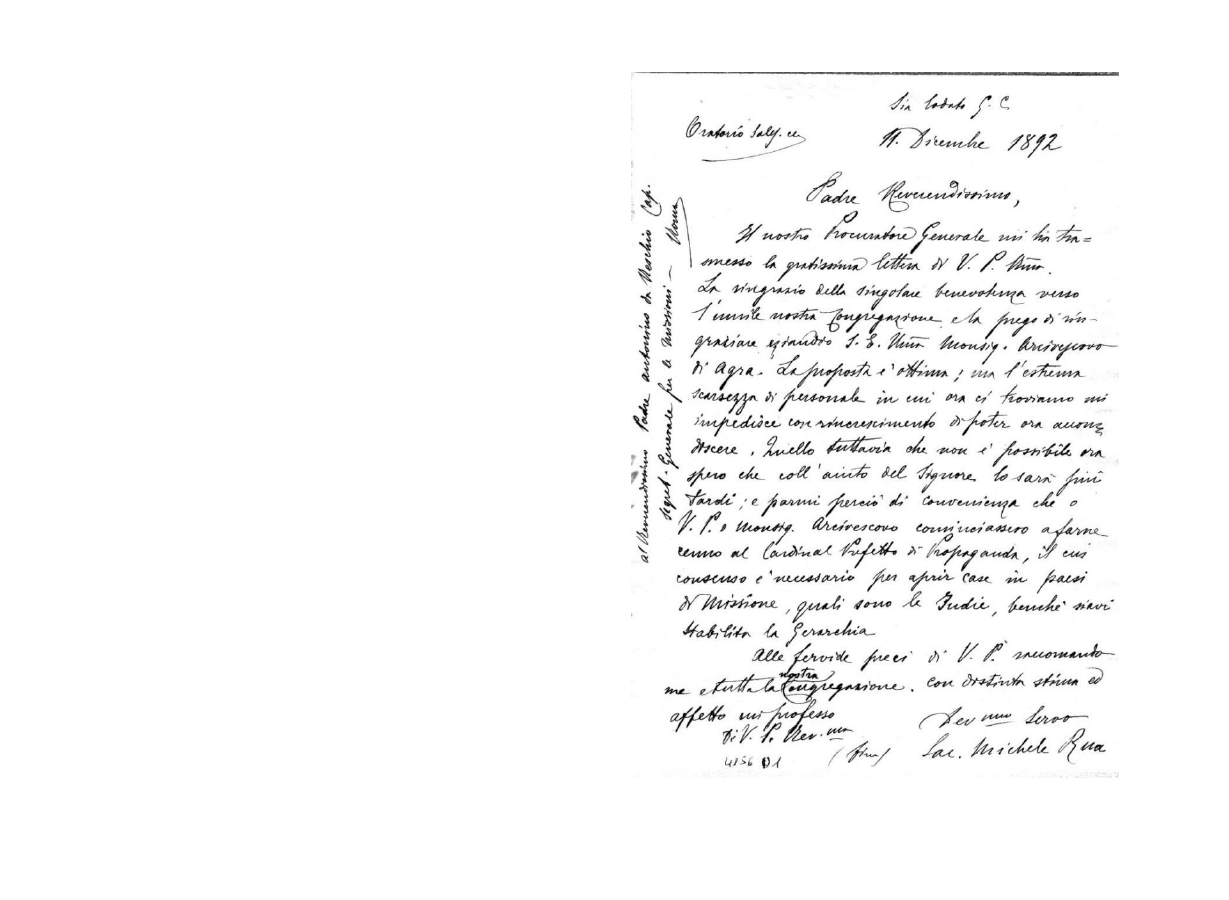 Sia lodato G. C.
Oratorio Sales. ec
11. Dicembre 1892
Padre Reverendissimo,
Il nostro Procuratore Generale mi ha tra=
smesso la gratissima lettera di V. P. Rma.
La ringrazio della singolare benevolenza verso
l'umile nostra Congregazione e la prego di rin-
graziare eziandio S. E. Rma Monsig. Arcivescovo
di Agra. La proposta è ottima; ma l'estrema
scarsezza di personale in cui ora ci troviamo mi
impedisce con rincrescimento di poter ora accon=
discere. Quello tuttavia che non è possibile ora
spero che coll'aiuto del Signore lo sarà più
tardi; e parmi perciò di convenienza che o
V. P. o Monsig. Arcivescovo cominciassero a farne
cenno al Cardinal Prefetto di Propaganda, il cui
consenso è necessario per aprir case in paesi
di Missione, quali sono le Indie, benchè siavi
stabilita la Gerarchia
Alle fervide preci di V. P. raccomando
me e tutta la nostra Congregazione. Con distinta stima ed
affetto mi professo
Di V. P. Rev.ma
Dev mo Servo
(firm) Sac. Michele Rua
4156 D1
al Reverendissimo Padre Antonino da Reschio Cap.
Segret. Generale per le Missioni — Roma